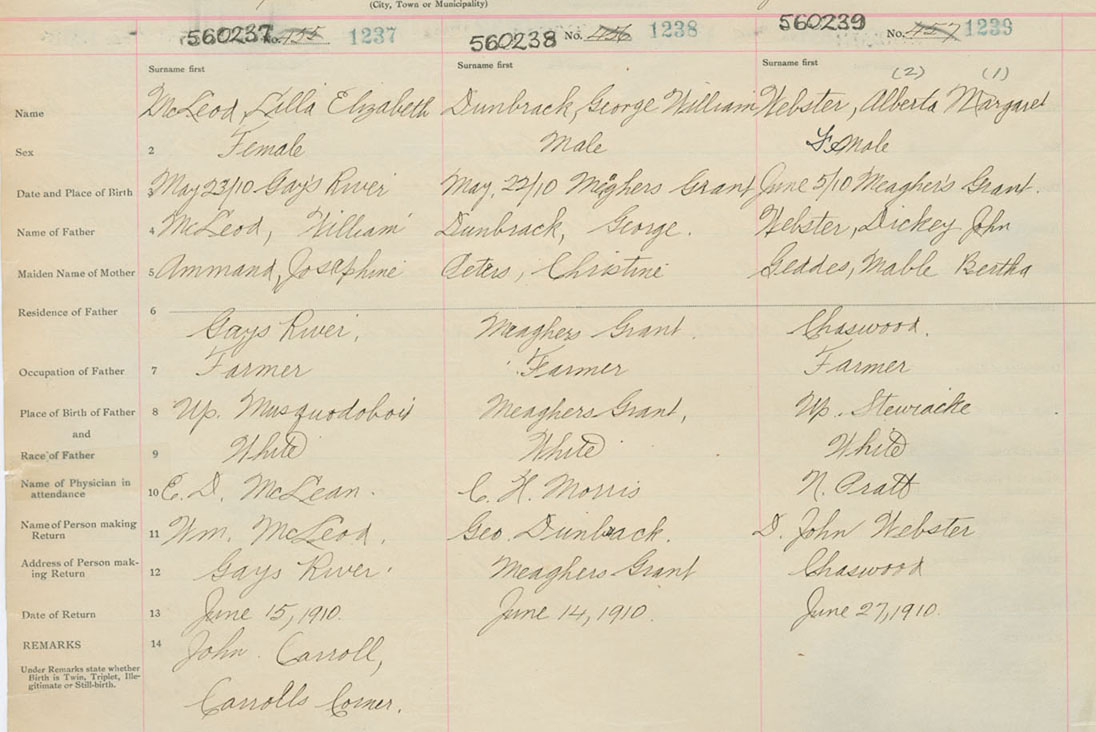 (City, Town or Municipality)
560237 No. 455 1237 560238 No. 456 1238 560239 No. 457 1239
Surname first Surname first Surname first
(2) (1)
Name McLeod, Lilla Elizabeth Dunbrack, George William Webster, Alberta Margaret
Sex 2 Female Male FeMale
Date and Place of Birth 3 May 23/10 Gay's River May, 22/10 Meghers Grant June 5/10 Meagher's Grant.
Name of Father 4 McLeod, William Dunbrack, George. Webster, Dickey John
Maiden Name of Mother 5 Ammand, Josephine Peters, Christine Geddes, Mable Bertha
Residence of Father 6 Gays River, Meaghers Grant. Chaswood.
Occupation of Father 7 Farmer Farmer Farmer
Place of Birth of Father 8 Up. Musquodoboit Meaghers Grant, Up. Stewiacke
and
Race of Father 9 White White White
Name of Physician in
attendance 10 E. D. McLean. C. H. Morris N. Pratt
Name of Person making
Return 11 Wm. McLeod. Geo. Dunbrack. D. John Webster
Address of Person mak-
ing Return 12 Gays River. Meaghers Grant Chaswood
Date of Return 13 June 15, 1910. June 14, 1910. June 27, 1910.
REMARKS 14 John Carroll,
Under Remarks state whether
Birth is Twin, Triplet, Ille-
gitimate or Still-birth.
Carrolls Corner.